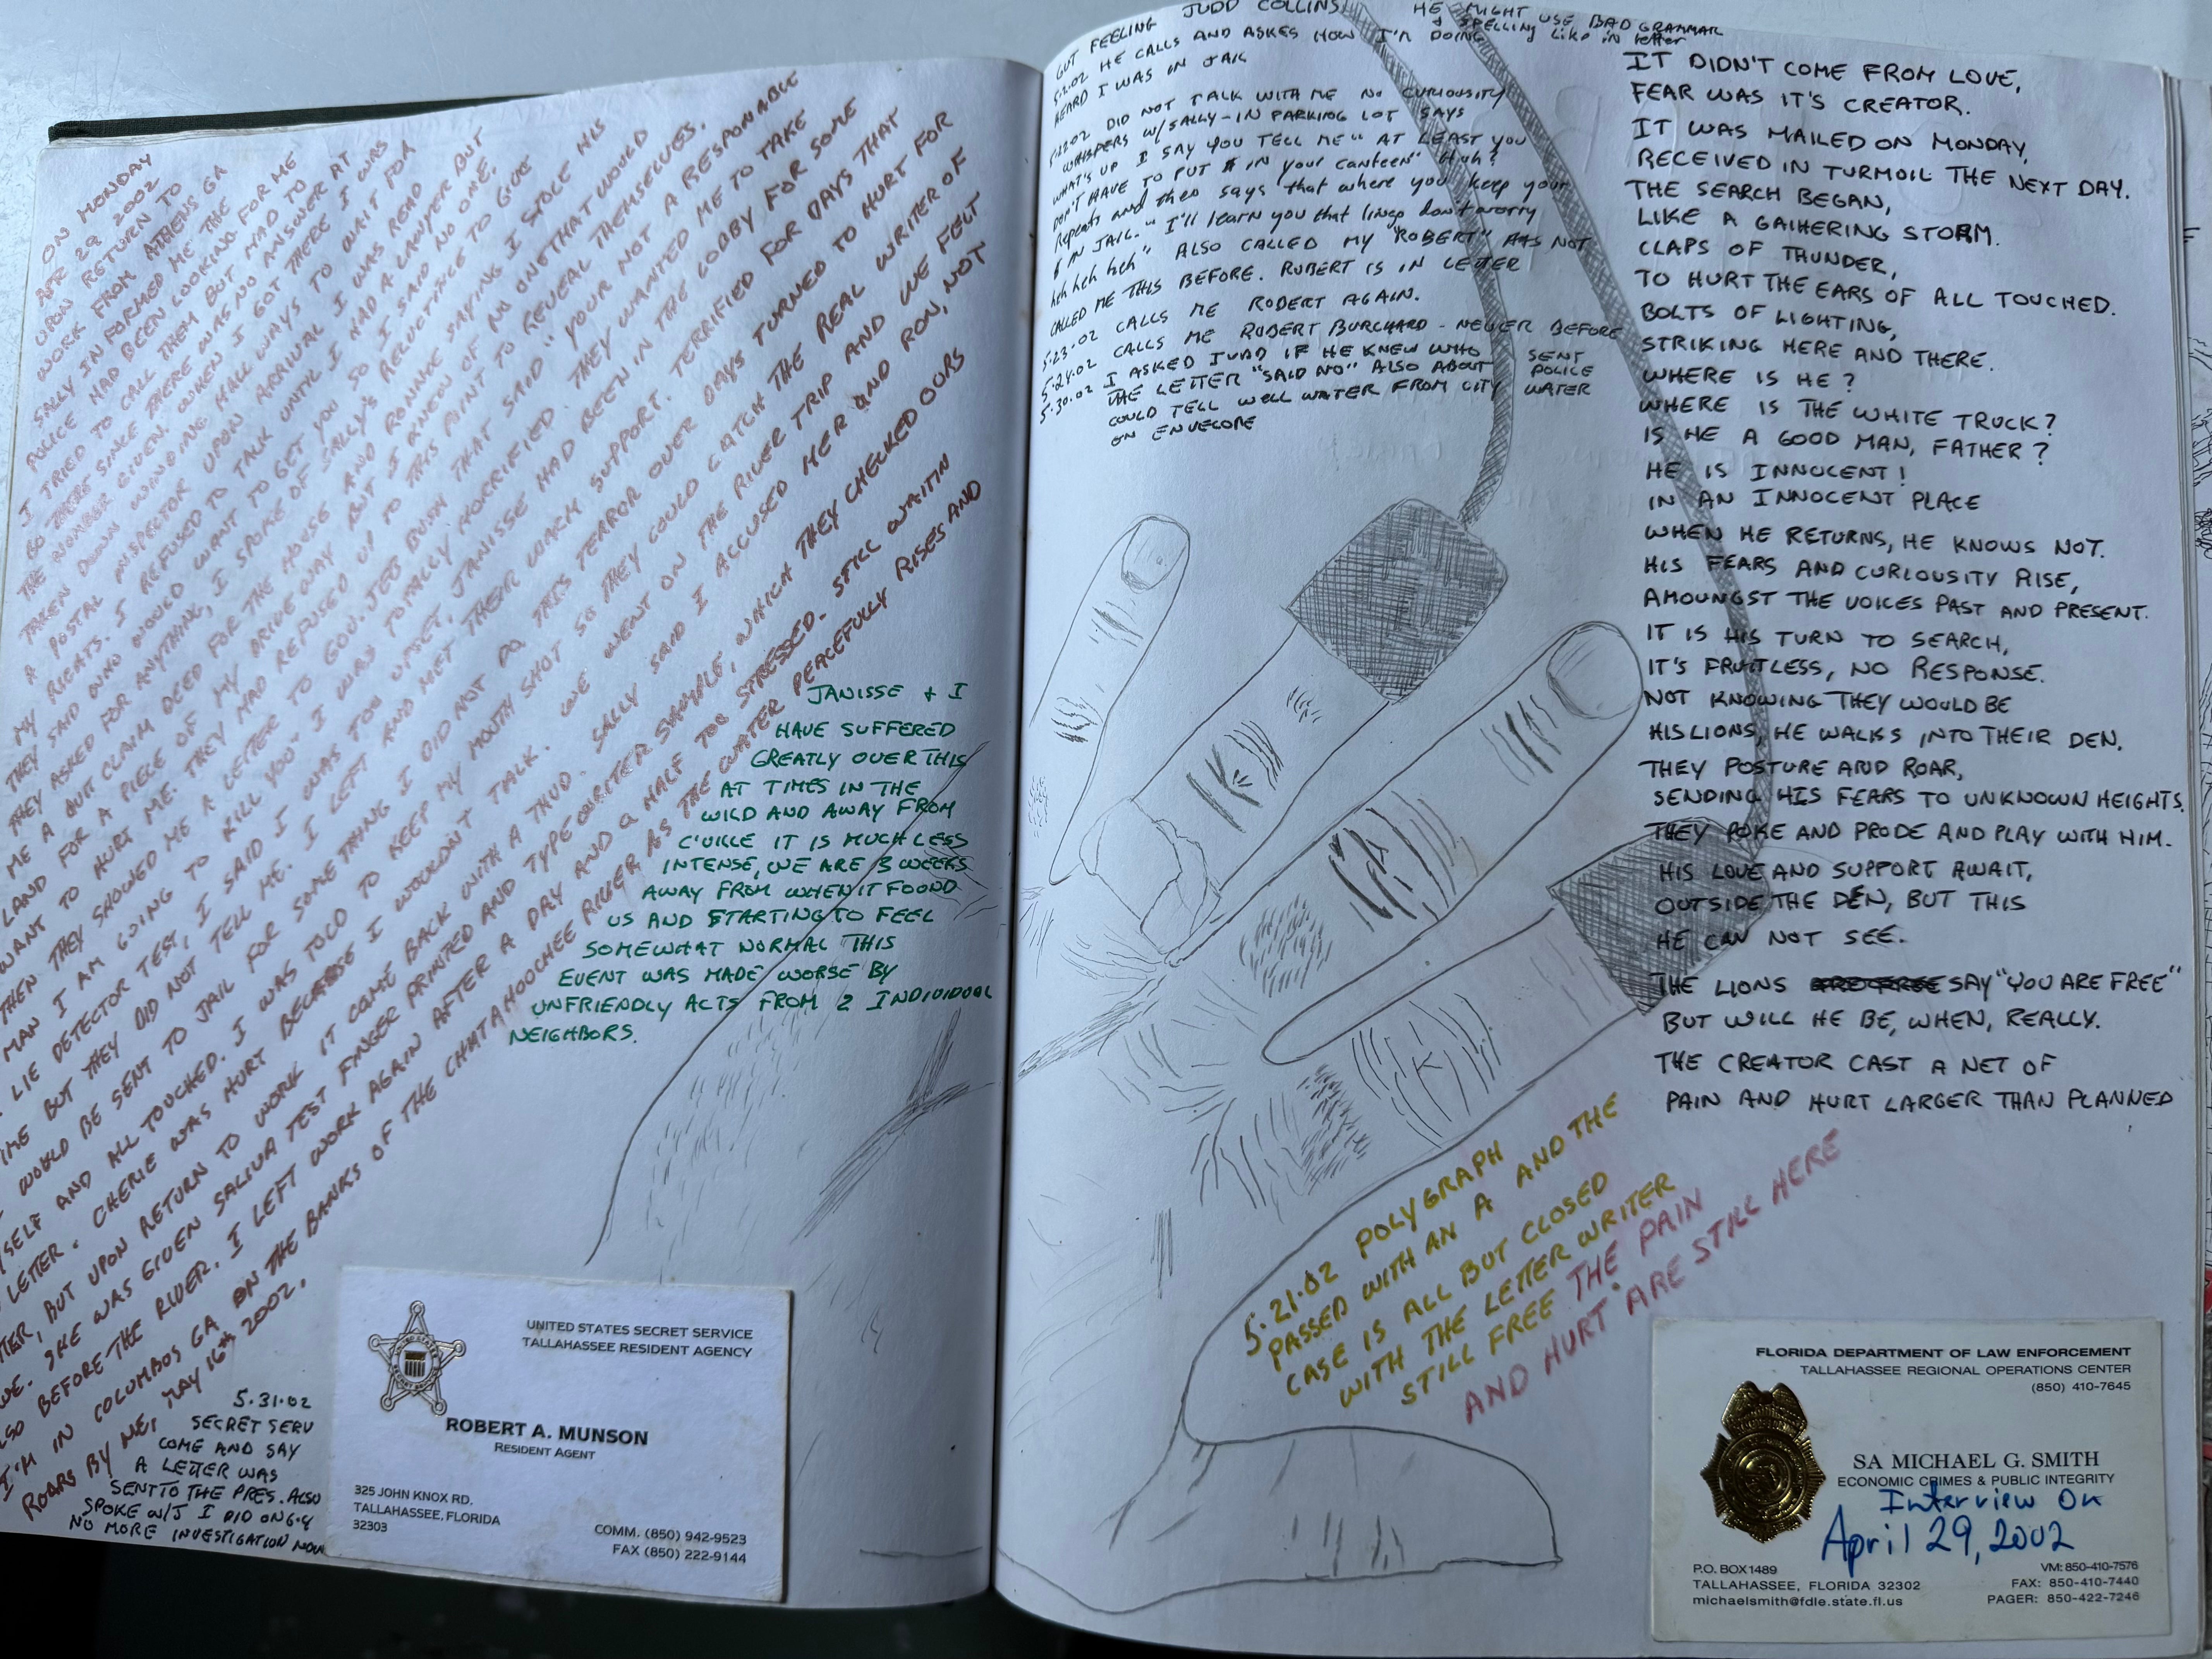 ON MONDAY
APR 29 2002
UPON RETURN TO
WORK FROM ATHENS GA
SALLY INFORMED ME THE
POLICE HAD BEEN LOOKING FOR ME
I TRIED TO CALL THEM BUT HAD TO
GO THERE SINCE THERE WAS NO ANSWER AT
THE NUMBER GIVEN. WHEN I GOT THERE I WAS
TAKEN DOWN WINDING HALL WAYS TO WAIT FOR
A POSTAL INSPECTOR UPON ARRIVAL I WAS READ
MY RIGHTS. I REFUSED TO TALK UNTIL I HAD A LAWYER BUT
THEY SAID WHO WOULD WANT TO GET YOU SO I SAID NO ONE.
THEY ASKED FOR ANYTHING, I SPOKE OF SALLY'S RELUCTANSE TO GIVE
ME A QUIT CLAIM DEED FOR THE HOUSE AND RONNIE SAYING I STOLE HIS
LAND FOR A PIECE OF MY DRIVE WAY BUT I KNEW OF NO ONE THAT WOULD
WANT TO HURT ME. THEY HAD REFUSED UP TO THIS POINT TO REVEAL THEMSELVES.
THEN THEY SHOWED ME A LETTER TO GOV. JEB BUSH THAT SAID "YOUR NOT A RESPONABLE
MAN I AM GOING TO KILL YOU. I WAS TOTALLY HORRIFIED THEY WANTED ME TO TAKE
LIE DETECTOR TEST, I SAID I WAS TOO UPSET, JANISSE HAD BEEN IN THE LOBBY FOR SOME
TIME BUT THEY DID NOT TELL ME. I LEFT AND MET THEIR SUPPORT. TERRIFIED FOR DAYS THAT
I WOULD BE SENT TO JAIL FOR SOMETHING I DID NOT DO. THIS TERROR OVER DAYS TURNED TO HURT FOR
SELF AND ALL TOUCHED. I WAS TOLD TO KEEP MY MOUTH SHUT SO THEY COULD CATCH THE REAL WRITER OF
LETTER. CHERIE WAS HURT BECAUSE I WOULDN'T TALK. WE WENT ON THE RIVER TRIP AND WE FELT
TTER, BUT UPON RETURN TO WORK IT COME BACK WITH A THUD. SALLY SAID I ACCUSED HER AND RON, NOT
UE. SHE WAS GIVEN SALIVA TEST FINGER PRINTED AND TYPEWRITER SAMPLE, WHICH THEY CHECKED OORS
LSO BEFORE THE RIVER. I LEFT WORK AGAIN AFTER A DAY AND A HALF TO STRESSED. STILL WAITIN
I'M IN COLUMBUS GA ON THE BANKS OF THE CHATAHOOCHEE RIVER AS THE WATER PEACEFULLY RISES AND
ROARS BY ME, MAY 16th 2002.
JANISSE + I
HAVE SUFFERED
GREATLY OVER THIS
AT TIMES IN THE
WILD AND AWAY FROM
C'VILLE IT IS MUCH LESS
INTENSE, WE ARE 3 WEEKS
AWAY FROM WHEN IT FOUND
US AND STARTING TO FEEL
SOMEWHAT NORMAL THIS
EVENT WAS MADE WORSE BY
UNFRIENDLY ACTS FROM 2 INDIVIDUAL
NEIGHBORS.
5.31.02
SECRET SERV
COME AND SAY
A LETTER WAS
SENT TO THE PRES. ALSO
SPOKE W/J I DID ON 6.4
NO MORE INVESTIGATION NOW
UNITED STATES SECRET SERVICE
TALLAHASSEE RESIDENT AGENCY
ROBERT A. MUNSON
RESIDENT AGENT
325 JOHN KNOX RD.
TALLAHASSEE, FLORIDA
32303
COMM. (850) 942-9523
FAX (850) 222-9144
GUT FEELING JUDD COLLINS HE MIGHT USE BAD GRAMMAR
+ SPELLING Like in letter
5.2.02 HE CALLS AND ASKES HOW I'M DOING
HEARD I WAS IN JAIL
5.22.02 DID NOT TALK WITH ME NO CURIOUSITY
WHISPERS W/SALLY-IN PARKING LOT SAYS
WHAT'S UP I SAY YOU TELL ME" AT LEAST YOU
DON'T HAVE TO PUT $ IN your canteen" Huh?
Repeats and then says that where you keep your
$ IN JAIL. "I'll learn you that lingo don't worry
heh heh heh" ALSO CALLED MY "ROBERT" HAS NOT
CALLED ME THIS BEFORE. ROBERT IS IN LETTER
5.23.02 CALLS ME ROBERT AGAIN.
5.24.02 CALLS ME ROBERT BURCHARD - NEVER BEFORE
5.30.02 I ASKED JUDD IF HE KNEW WHO SENT
THE LETTER "SAID NO" ALSO ABOUT POLICE
COULD TELL WELL WATER FROM CITY WATER
ON ENVELOPE
IT DIDN'T COME FROM LOVE,
FEAR WAS IT'S CREATOR.
IT WAS MAILED ON MONDAY,
RECEIVED IN TURMOIL THE NEXT DAY.
THE SEARCH BEGAN,
LIKE A GATHERING STORM.
CLAPS OF THUNDER,
TO HURT THE EARS OF ALL TOUCHED.
BOLTS OF LIGHTING,
STRIKING HERE AND THERE.
WHERE IS HE?
WHERE IS THE WHITE TRUCK?
IS HE A GOOD MAN, FATHER?
HE IS INNOCENT!
IN AN INNOCENT PLACE
WHEN HE RETURNS, HE KNOWS NOT.
HIS FEARS AND CURIOUSITY RISE,
AMOUNGST THE VOICES PAST AND PRESENT.
IT IS HIS TURN TO SEARCH,
IT'S FRUITLESS, NO RESPONSE.
NOT KNOWING THEY WOULD BE
HIS LIONS, HE WALKS INTO THEIR DEN.
THEY POSTURE AND ROAR,
SENDING HIS FEARS TO UNKNOWN HEIGHTS.
THEY POKE AND PRODE AND PLAY WITH HIM.
HIS LOVE AND SUPPORT AWAIT,
OUTSIDE THE DEN, BUT THIS
HE CAN NOT SEE.
THE LIONS SAY "YOU ARE FREE"
BUT WILL HE BE, WHEN, REALLY.
THE CREATOR CAST A NET OF
PAIN AND HURT LARGER THAN PLANNED
5.21.02 POLYGRAPH
PASSED WITH AN A AND THE
CASE IS ALL BUT CLOSED
WITH THE LETTER WRITER
STILL FREE THE PAIN
AND HURT ARE STILL HERE
FLORIDA DEPARTMENT OF LAW ENFORCEMENT
TALLAHASSEE REGIONAL OPERATIONS CENTER
(850) 410-7645
SA MICHAEL G. SMITH
ECONOMIC CRIMES & PUBLIC INTEGRITY
Interview On
April 29, 2002
P.O. BOX 1489
TALLAHASSEE, FLORIDA 32302
michaelsmith@fdle.state.fl.us
VM: 850-410-7576
FAX: 850-410-7440
PAGER: 850-422-7246